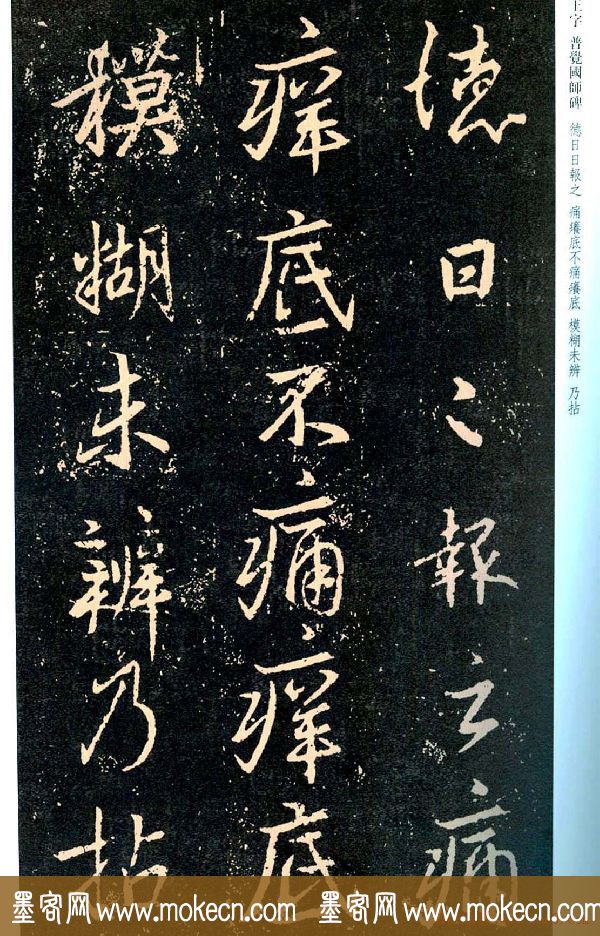 王字 普覺國師碑 德日日報之 痛癢底不痛癢底 模糊未辨 乃拈
德日〻報云痛
痒底不痛痒底
糢糊未辨乃拈
墨客网 www.mokecn.com 墨客网 www.mokecn.com